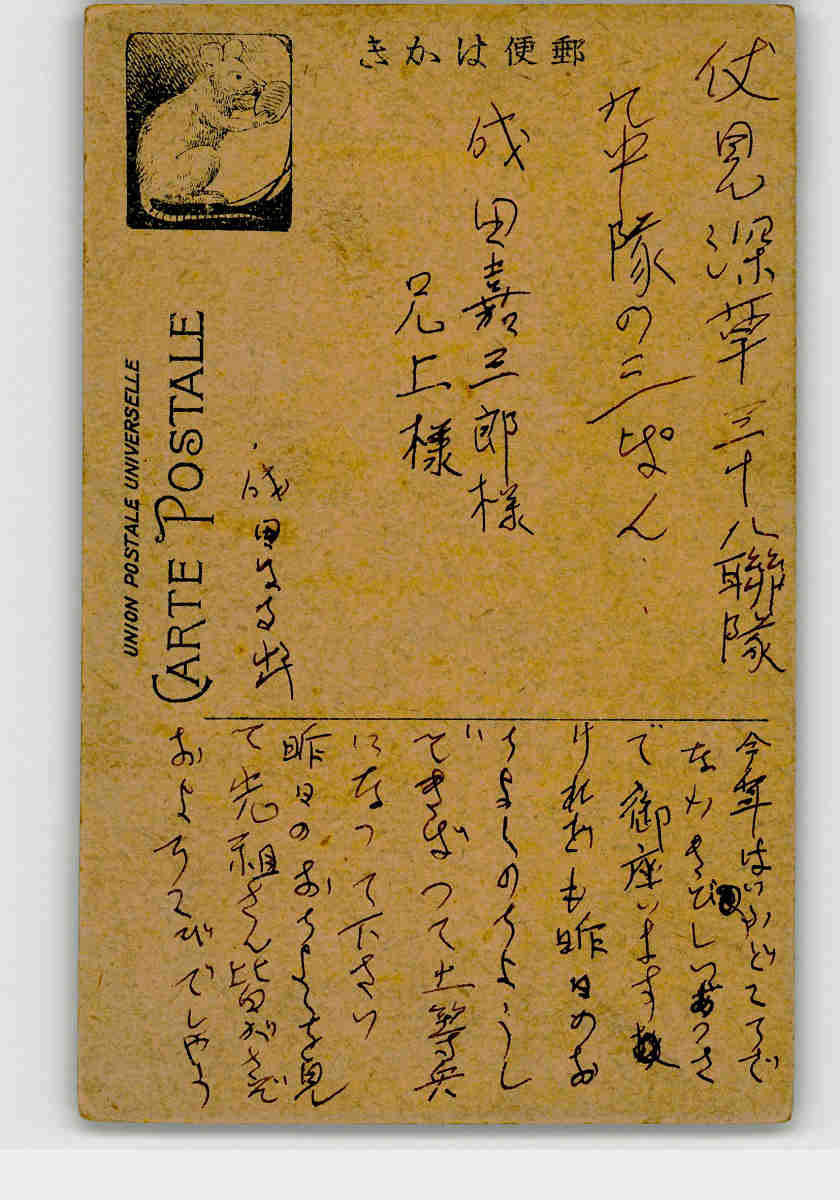 郵便はかき
伏見深草三十八聯隊
九中隊の三はん
成田嘉三郎様
兄上様
成田
UNION POSTALE UNIVERSELLE
CARTE POSTALE
今年は
なかきびしいあつさ
で御座います
けれども昨日のお
ちよくのちよ
できばつて上等兵
になつて下さい
昨日のお を見
て先祖さん皆がさぞ
およろこびでしやう